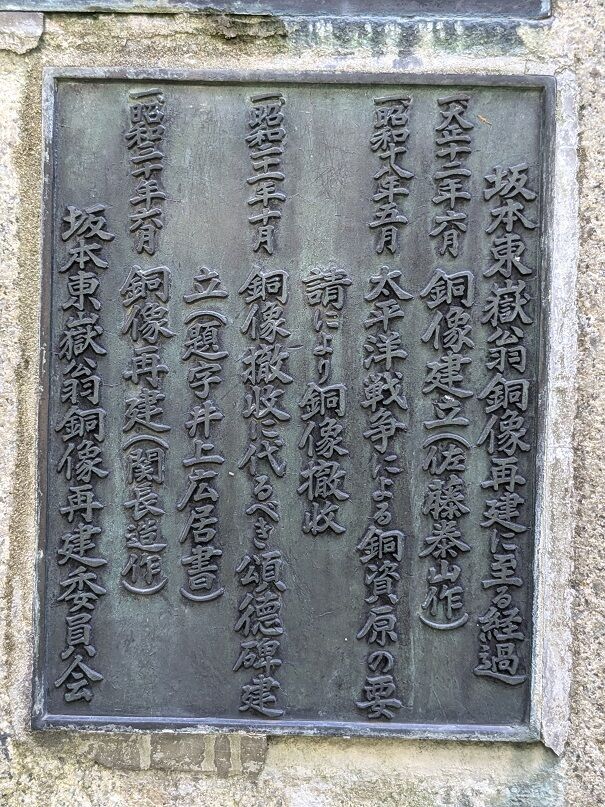 坂本東嶽翁銅像再建に至る経過
一大正十二年六月 銅像建立(佐藤泰山作)
一昭和十八年五月 太平洋戦争による銅資原の要
請により銅像撤收
一昭和二十一年十月 銅像撤收に代るべき頌徳碑建
立(題字井上広居書)
一昭和三十年六月 銅像再建(関長造作)
坂本東嶽翁銅像再建委員会